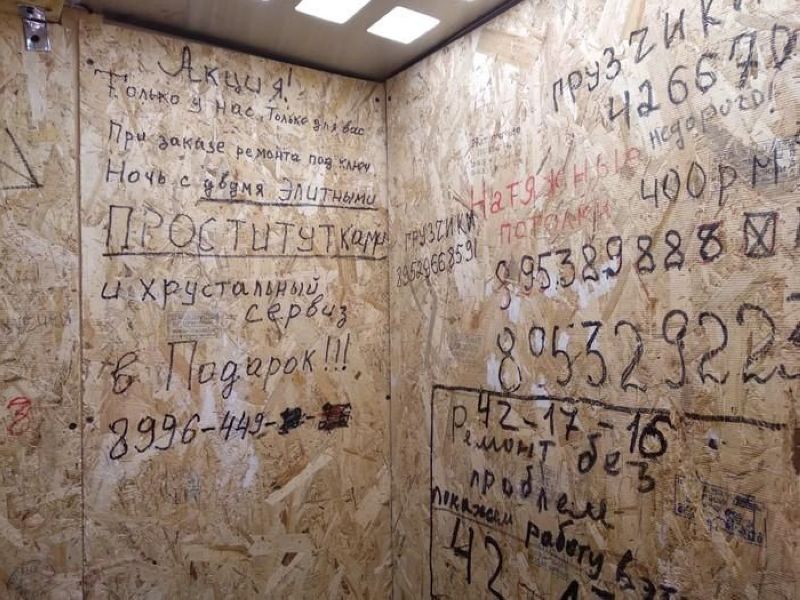 Акция!
Только у нас, Только для вас
При заказе ремонта под ключ
Ночь с двумя элитными
ПРОСТИТУТКАМИ
и хрустальный
сервиз
в Подарок!!!
8996-449-
грузчики
89529668591
грузчики
426670
недорого!
400р
Натяжные
потолки
895389888
8953292
42-17-16
ремонт без
проблем
покажем работу в
42